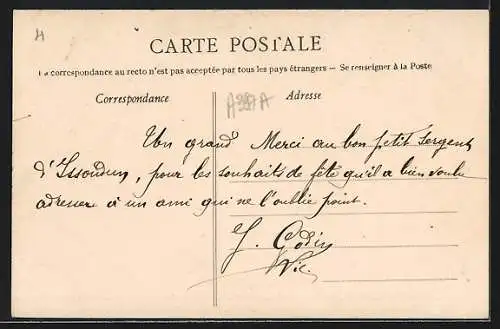 H
CARTE POSTALE
La correspondance au recto n'est pas acceptée par tous les pays étrangers - Se renseigner à la Poste
Correspondance
A387A
Adresse
Un grand Merci au bon petit Sergent
d'Issoudun, pour les souhaits de fête qu'il a bien voulu
adresser à un ami qui ne l'oublie point.
J. Godin
Vic.